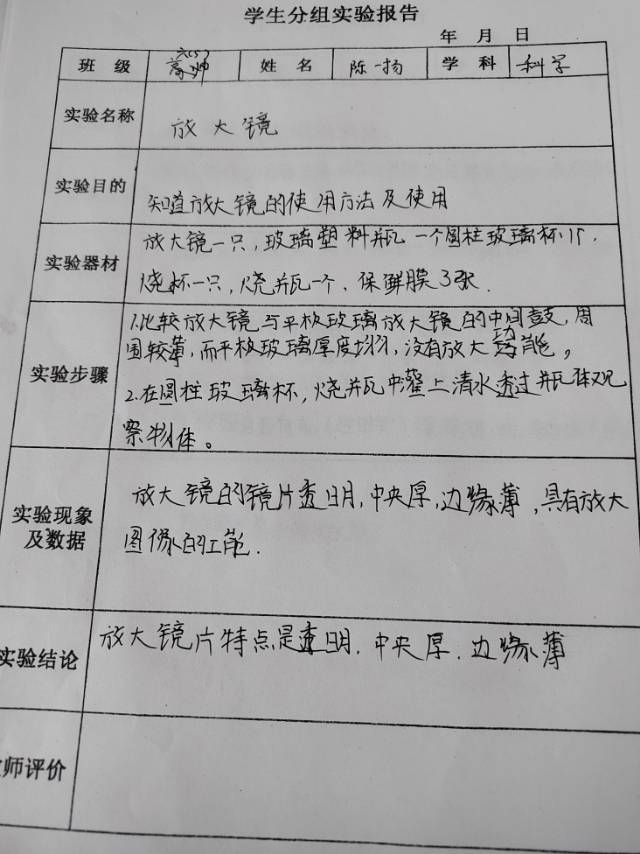 学生分组实验报告
年 月 日
班 级 六(5) 姓 名 陈一扬 学 科 科学
实验名称 放大镜
实验目的 知道放大镜的使用方法及使用
实验器材 放大镜一只，玻璃塑料瓶一个圆柱玻璃杯1个，
烧杯一只，烧瓶一个、保鲜膜3张.
实验步骤 1.比较放大镜与平板玻璃放大镜的中间鼓，周
围较薄，而平板玻璃厚度均匀，没有放大功能。
2.在圆柱玻璃杯，烧瓶中灌上清水透过瓶体观
察物体。
实验现象及数据 放大镜的镜片透明，中央厚，边缘薄，具有放大
图像的工能.
实验结论 放大镜片特点是透明.中央厚.边缘薄
师评价